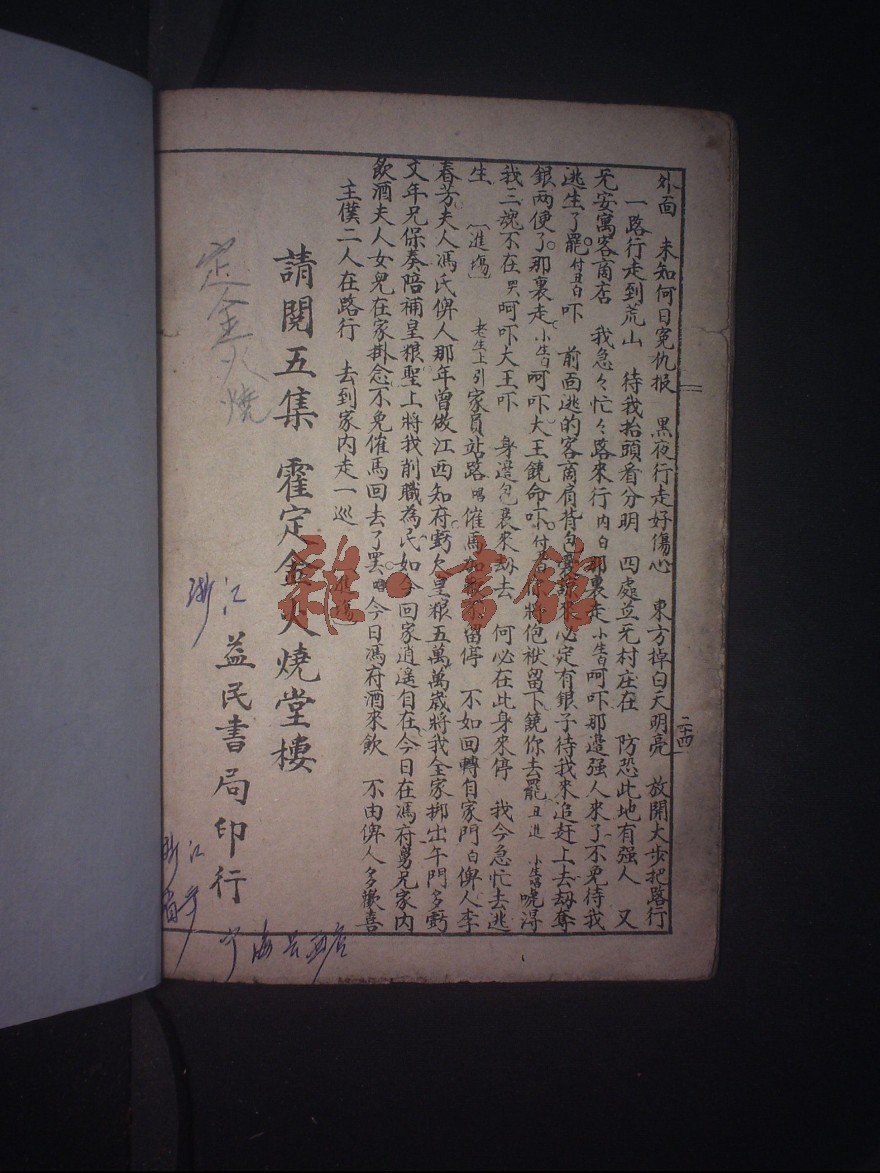 外面 未知何日冤仇报 黑夜行走好傷心 東方掉白天明亮 放開大步把路行
一路行走到荒山 待我抬頭看分明 四處並无村庄在 防恐此地有强人 又
无安寓客商店 我急々忙々路來行 内白那裏走 小生白呵吓那邉强人來了不免待我
逃生了罷 付丑白吓 前面逃的客商肩背包裹 心定有銀子待我來追赶上去刼奪
銀两便了 那裏走 小生白呵吓大王饒命吓 付丑 将包袱留下饒你去罷 丑進 小生唱唬得
我三魂不在 哭呵吓大王吓 身邉包裹來刼去 何必在此身來停 我今急忙去逃
生 〔進場〕 老生上引家員站路 唱催馬加鞭不留停 不如回轉自家門 白俾人李
春芳夫人馮氏俾人那年曾做江西知府虧欠皇粮五萬萬歳將我全家挷出午門多虧
文年兄保奏陪補皇粮聖上將我削職為民如今回家逍遥自在今日在馮府舅兄家内
飲酒夫人女兒在家掛念不免催馬回去了罢 唱今日馮府酒來飲 不由俾人多歡喜
主僕二人在路行 去到家内走一巡 進場
請閱五集 霍定金火燒堂樓
浙江 益民書局印行
定金火燒
浙江
浙江
二十四
雜·書館